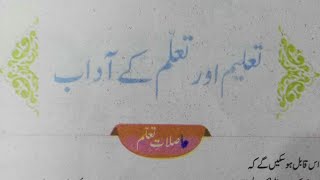 تعلیم اور تعلّم کے آداب
حاصلات تعلم
اس قابل ہو سکیں گے کہ